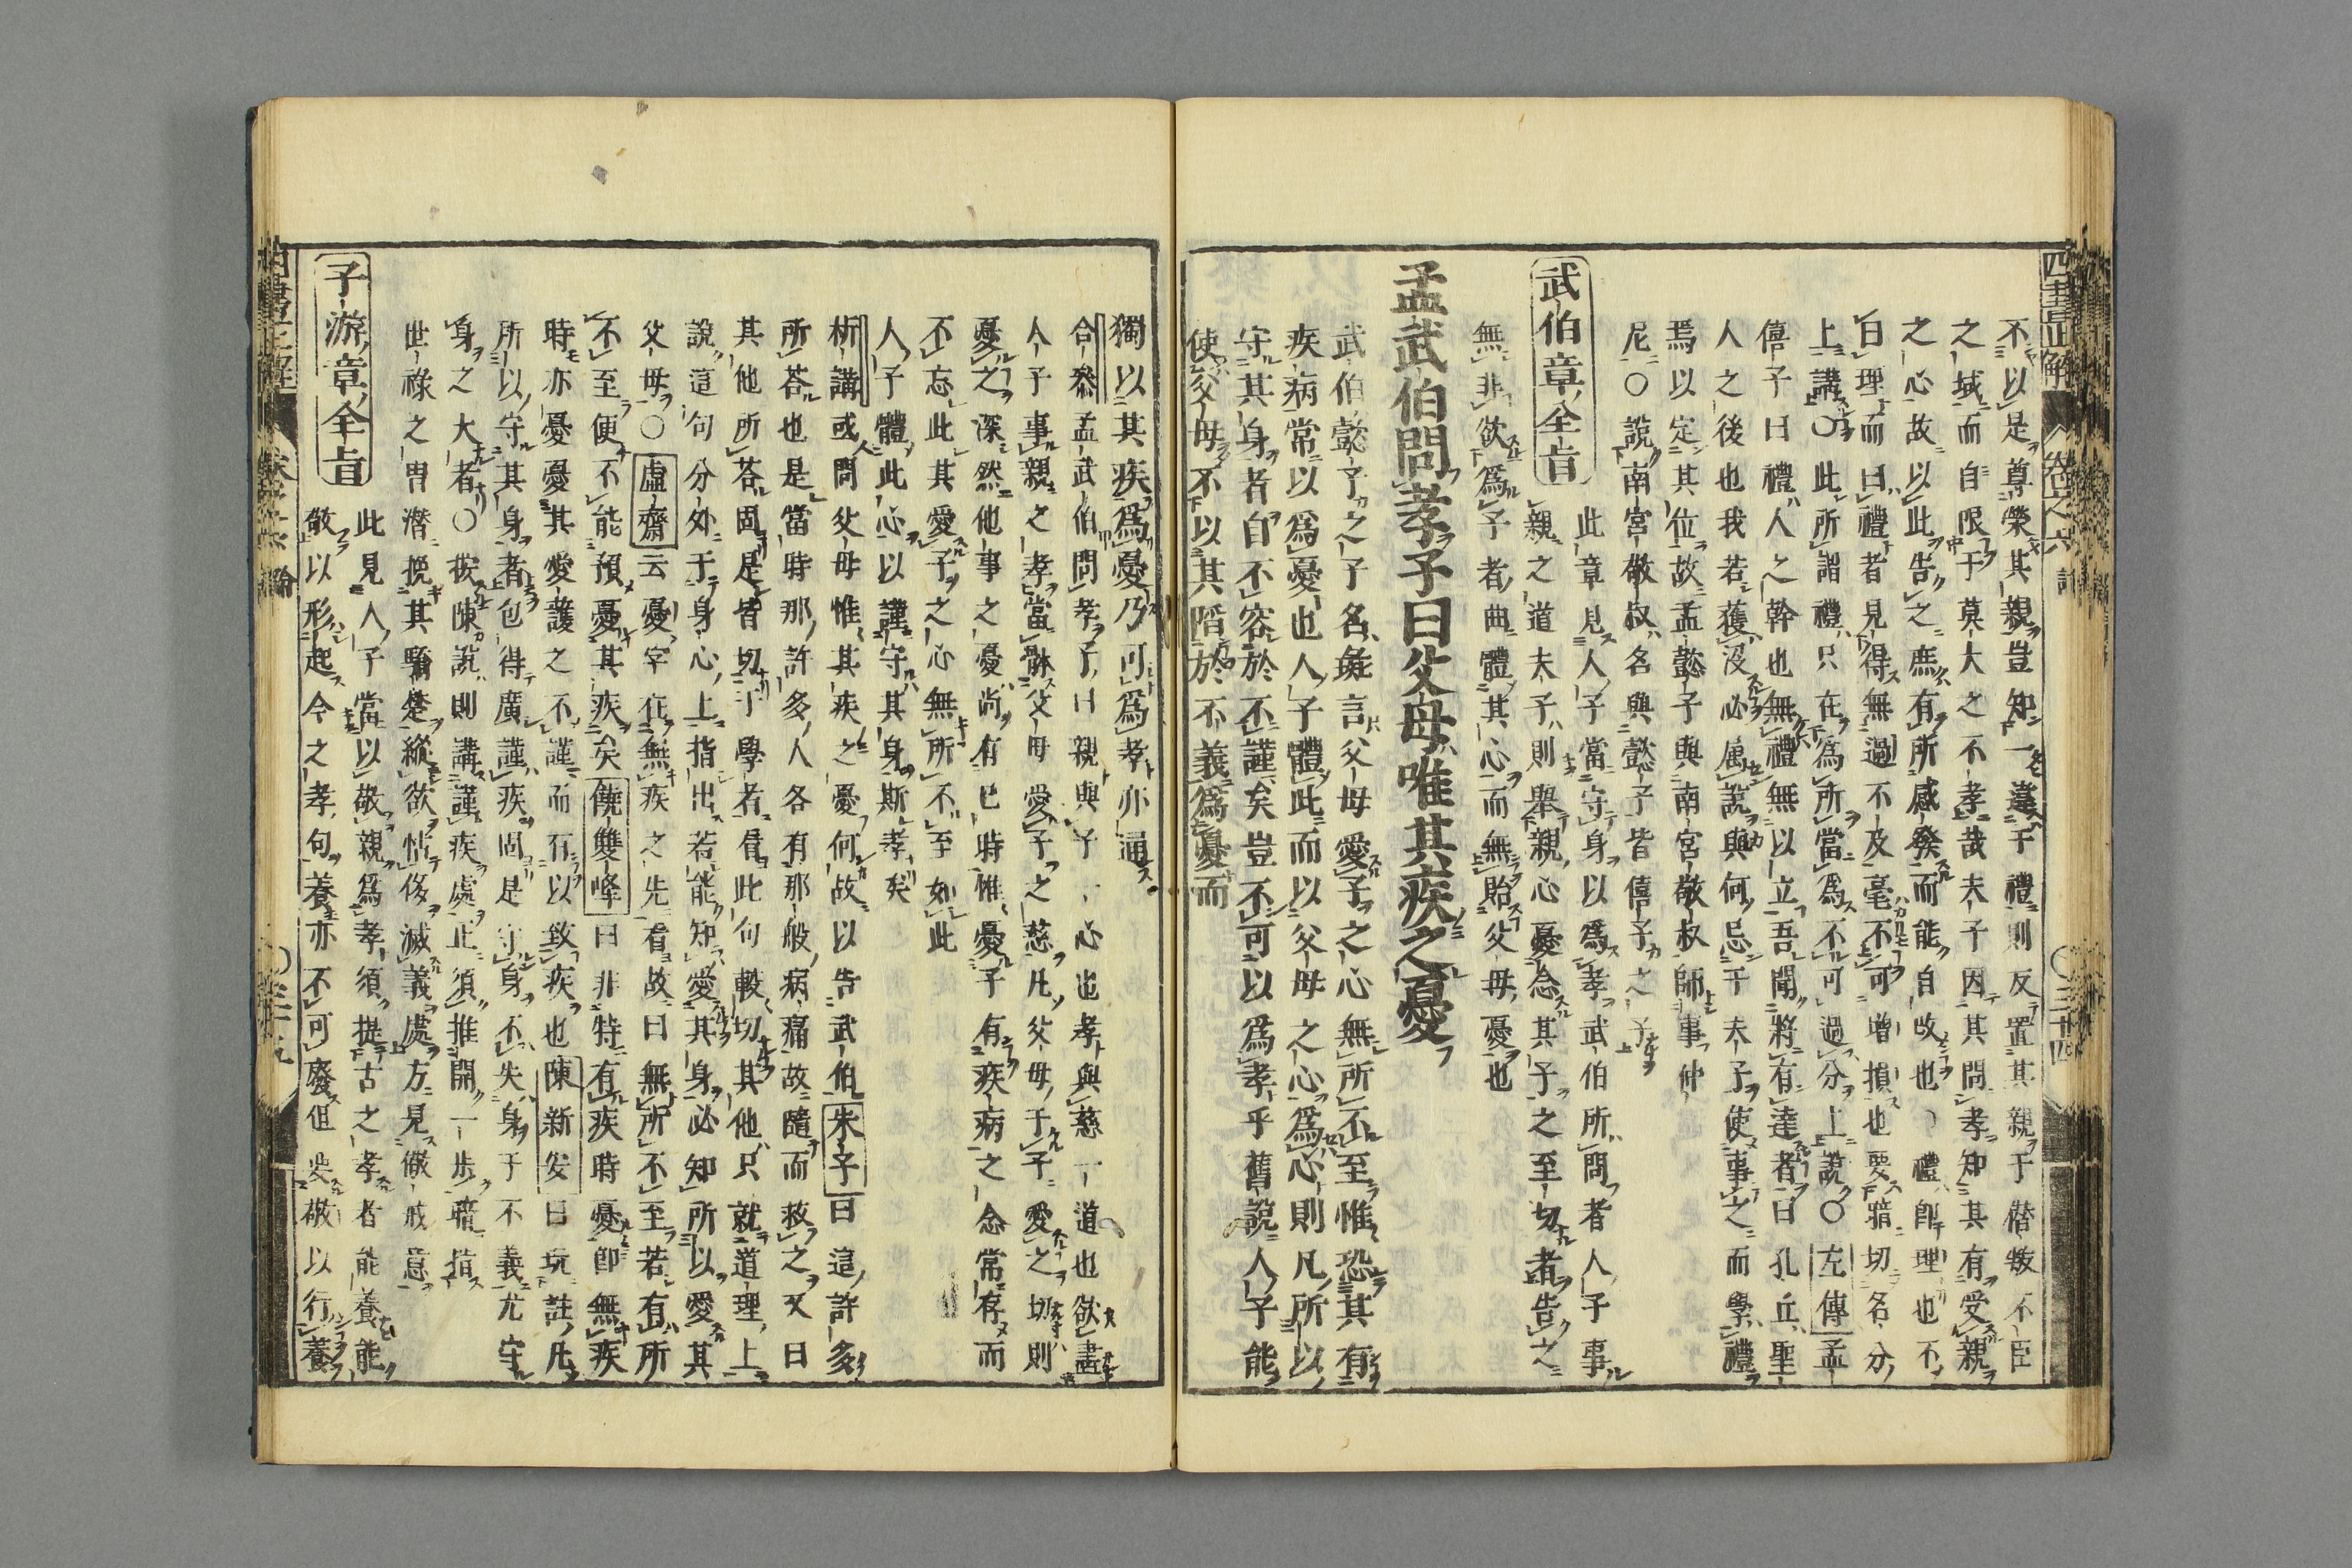 四書正解 卷之六 論 〇三十四
不以是尊榮其親豈知一違于禮則反置其親于僭叛不臣
之域而自限于莫大之不孝哉夫子因其問孝知其有受親
之心故以此告之庶有所感發而能自改也 禮卽理也不
曰理而曰禮者見得無過不及毫不可增損也要縮切名分
上講〇此所謂禮只在為所當爲不可過分上說〇左傳孟
僖子曰禮人之幹也無禮無以立吾聞將有達者曰孔丘聖
人之後也我若獲沒必属說與何忌于夫子使事之而學禮
焉以定其位故孟懿子與南宮敬叔師事仲
尼〇說南宮敬叔名與懿子皆僖子之子
武伯章全旨
此章見人子當守身以爲孝武伯所問者人子事
親之道夫子則舉親心憂念其子之至切者告之
無非欲爲子者曲體其心而無貽父母憂也
孟武伯問孝子曰父母唯其疾之憂
武伯懿子之子名彘言父母愛子之心無所不至惟恐其有
疾病常以爲憂也人子體此而以父母之心爲心則凡所以
守其身者自不容於不謹矣豈不可以爲孝乎舊說人子能
使父母不以其陷於不義爲憂而
獨以其疾爲憂乃可爲孝亦通
合參孟武伯問孝子曰親與子一心也孝與慈一道也欲盡
人子事親之孝當體父母愛子之慈凡父母于子愛之切則
憂之深然他事之憂尚有已時惟憂子有疾病之念常存而
不忘此其愛子之心無所不至如此
人子體此心以謹守其身斯孝矣
析講或問父母惟其疾之憂何故以告武伯朱子曰這許多
所荅也是當時那許多人各有那般病痛故隨而救之又曰
其他所荅固是皆切于學者看此句較切其他只就道理上
說這句分外于身心上指出若能知愛其身必知所以愛其
父母〇盧齋云憂字在無疾之先看故曰無所不至若有所
不至便不能預憂其疾矣饒雙峰曰非特有疾時憂卽無疾
時亦憂憂其愛護之不謹而有以致疾也陳新安曰玩註凡
所以守其身者包得廣謹疾固是守身不失身于不義尤守
身之大者〇按陳說則講謹疾處正須推開一步暗指
世祿之冑潛挽其驕楚縱欲恬侈滅義處方見儆戒意
子游章全旨
此見人子當以敬親爲孝須提古之孝者能養能
敬以形起今之孝句養亦不可廢但要敬以行養
四書正解 卷之六 論 〇三十五